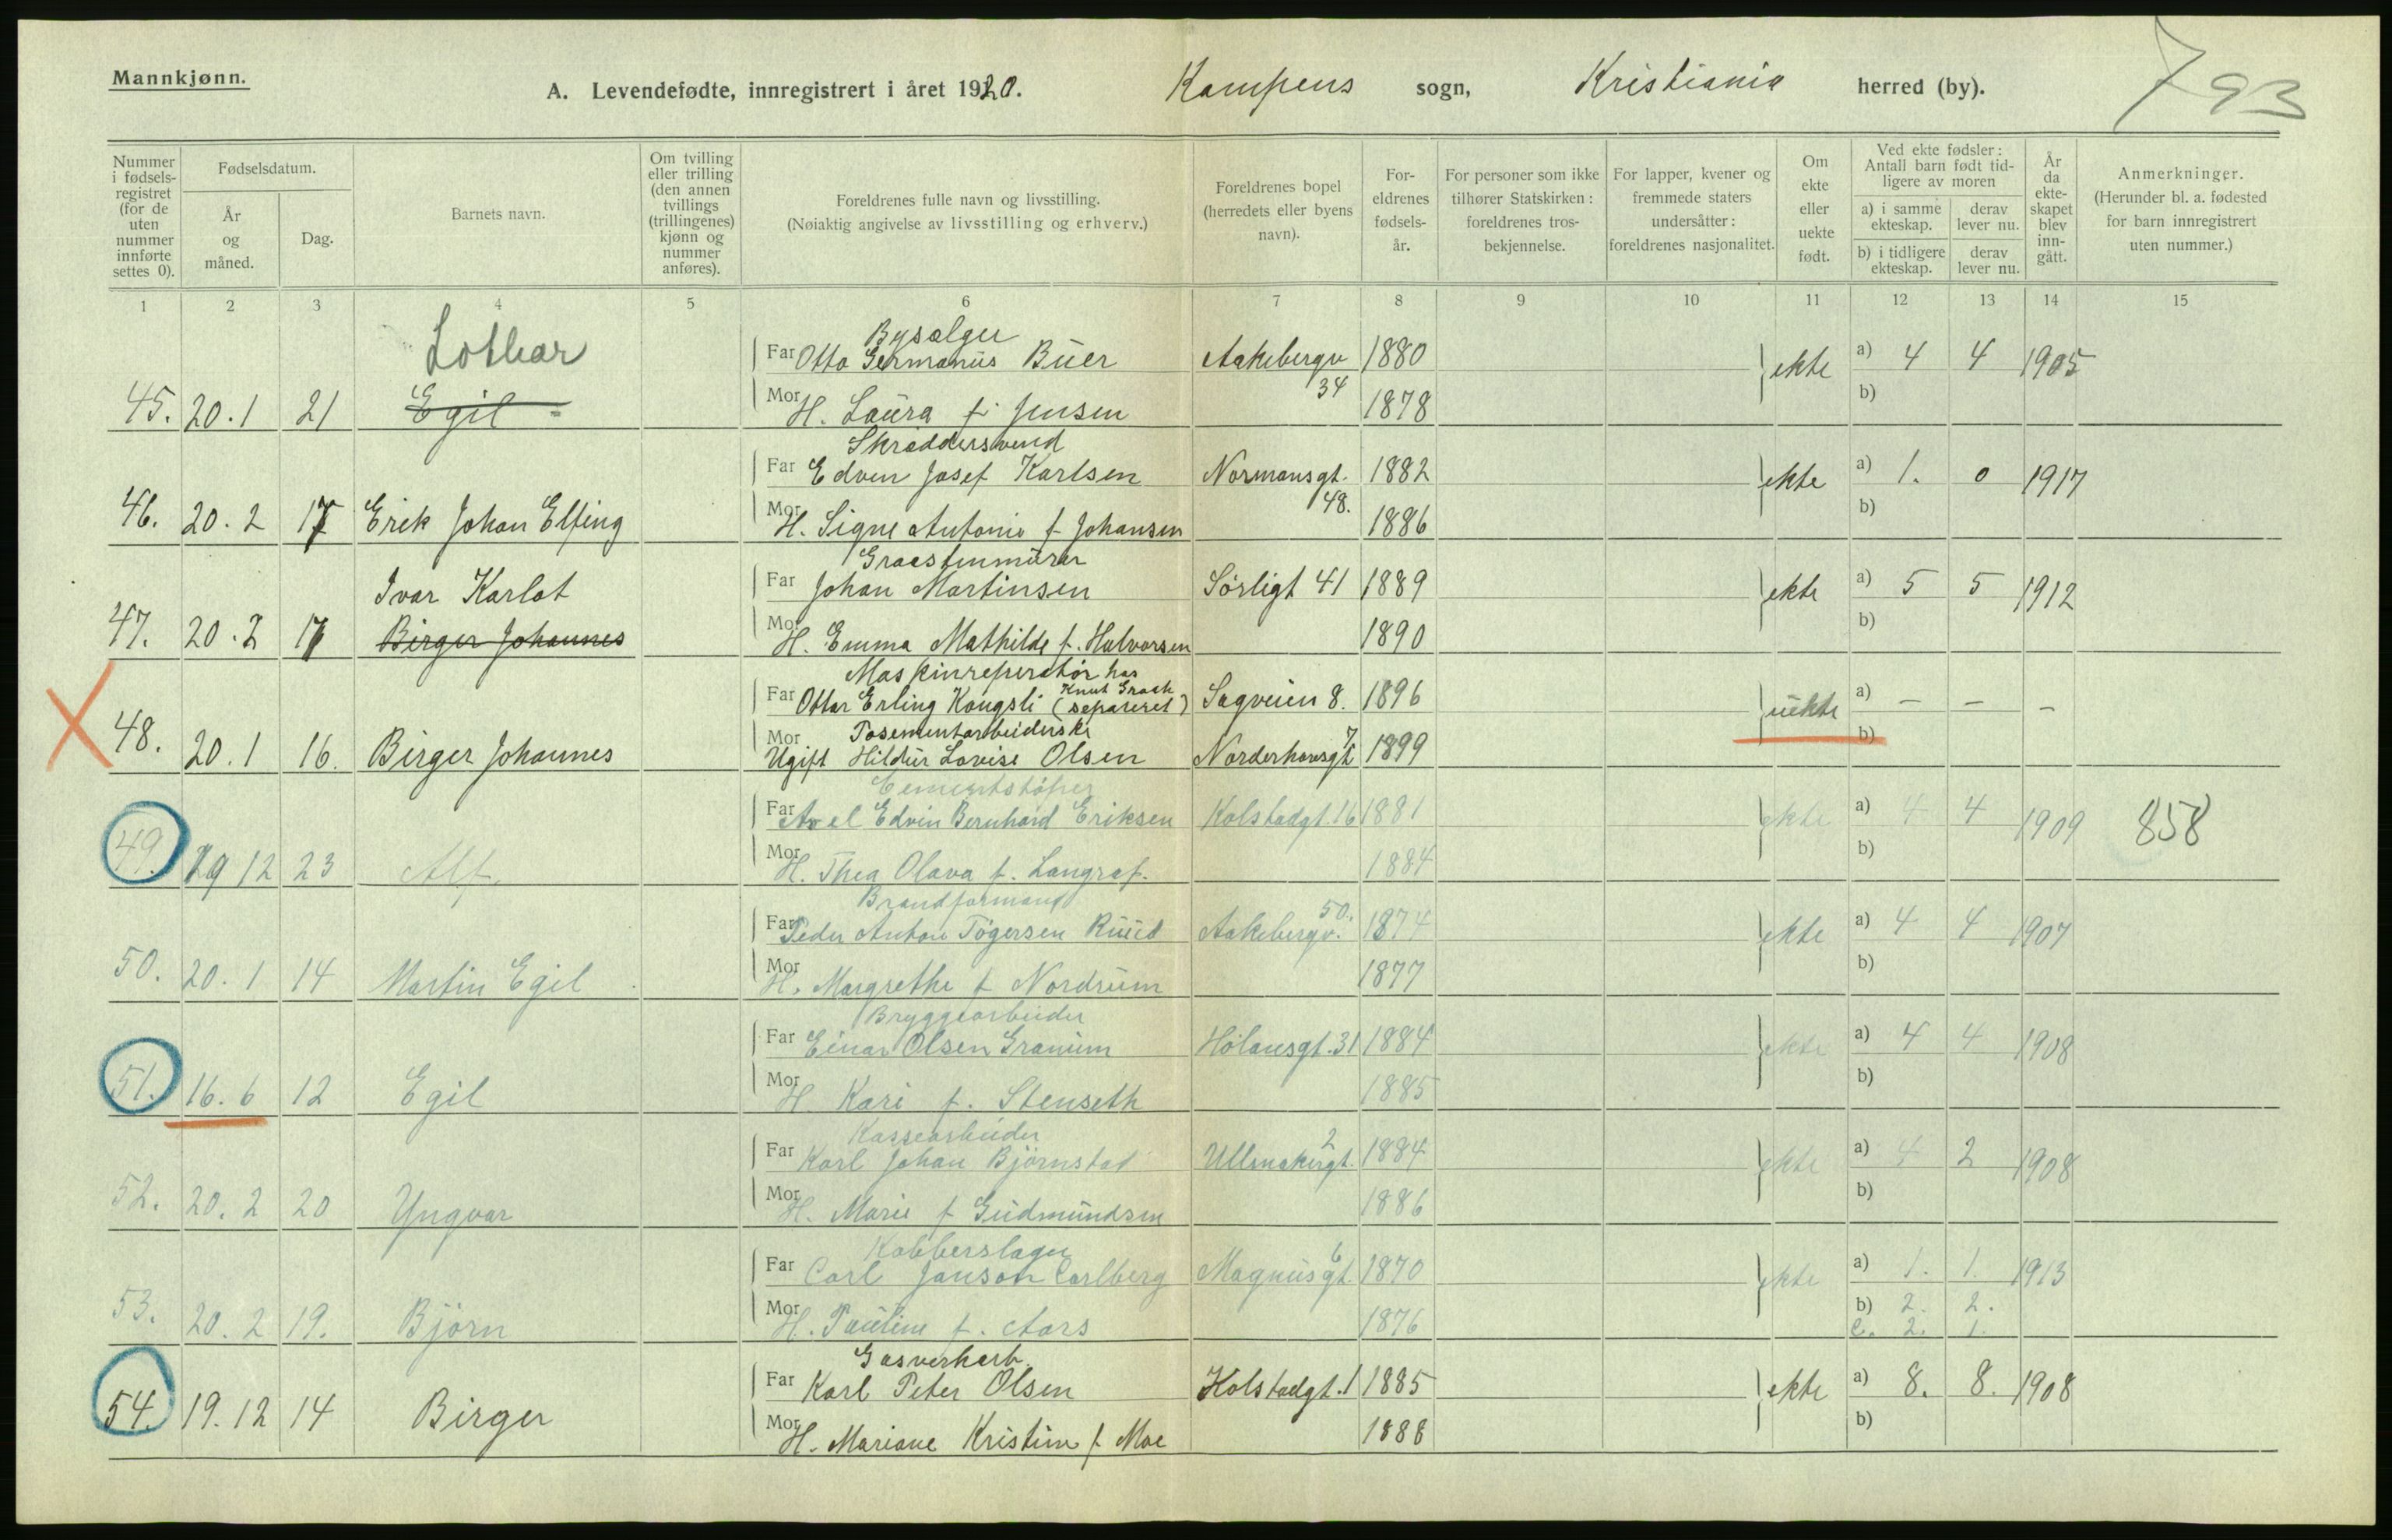 Mannkjønn.
A. Levendefødte, innregistrert i året 1920. Kampens sogn, Kristiania herred (by).
793
Nummer i fødselsregistret (for de uten nummer innførte settes 0).
Fødselsdatum.
År og måned.
Dag.
Barnets navn.
Om tvilling eller trilling (den annen tvillings (trillingenes) kjønn og nummer anføres).
Foreldrenes fulle navn og livsstilling.
(Nøiaktig angivelse av livsstilling og erhverv.)
Foreldrenes bopel (herredets eller byens navn).
Foreldrenes fødselsår.
For personer som ikke tilhører Statskirken: foreldrenes trosbekjennelse.
For lapper, kvener og fremmede staters undersåtter: foreldrenes nasjonalitet.
Om ekte eller uekte født.
Ved ekte fødsler: Antall barn født tidligere av moren
a) i samme ekteskap. derav lever nu.
b) i tidligere ekteskap. derav lever nu.
År da ekteskapet blev inngått.
Anmerkninger.
(Herunder bl. a. fødested for barn innregistrert uten nummer.)
1 2 3 4 5 6 7 8 9 10 11 12 13 14 15
Lothar Bysælger
Far Otto Germanius Buer Aakebergv 34 1880 ekte a) 4 4 1905
45. 20.1 21 Egil Mor H. Laura f. Jensen 1878 b)
Skræddersvend
Far Edvin Josef Karlsen Normansgt. 48. 1882 ekte a) 1. 0 1917
46. 20.2 17 Erik Johan Elfing Mor H. Signe Antonie f. Johansen 1886 b)
Graastenmurer
Ivar Karlot Far Johan Martinsen Sørligt 41 1889 ekte a) 5 5 1912
47. 20.2 17 Birger Johannes Mor H. Emma Mathilde f. Halvorsen 1890 b)
Maskinreperatør hos
Knut Graah
Far Ottar Erling Kongsli (separeret) Sagveien 8. 1896 uekte a) — — —
Posementarbeiderske
48. 20.1 16. Birger Johannes Mor Ugift Hildur Lovise Olsen Norderhovsgt 7 1899 b)
Cementstøper
Far Axel Edvin Bernhard Eriksen Kolstadgt. 16 1881 ekte a) 4 4 1909 858
49. 19 12 23 Alf. Mor H. Thea Olava f. Langraf. 1884 b)
Brandformand
Far Peder Anton Tøgersen Ruud Aakebergv. 50. 1874 ekte a) 4 4 1907
50. 20.1 14 Martin Egil Mor H. Margrethe f Nordrum 1877 b)
Bryggearbeider
Far Einar Olsen Granum Hølansgt. 31 1884 ekte a) 4 4 1908
51. 16.6 12 Egil Mor H Kari f. Stenseth 1885 b)
Kassearbeider
Far Karl Johan Bjørnstad Ullensakergt. 2 1884 ekte a) 4 2 1908
52. 20.2 20 Yngvar Mor H. Marie f Gudmundsen 1886 b)
Kobberslager
Far Carl Janson Carlberg Magnusgt. 6 1870 ekte a) 1. 1. 1913
53. 20.2 19. Björn Mor H. Pauline f. Aars 1876 b) 2. 2.
c. 2. 1.
Gasverkarb.
Far Karl Peter Olsen Kolstadgt. 1 1885 ekte a) 8. 8. 1908
54. 19.12 14 Birger Mor H. Mariane Kristine f Moe 1888 b)